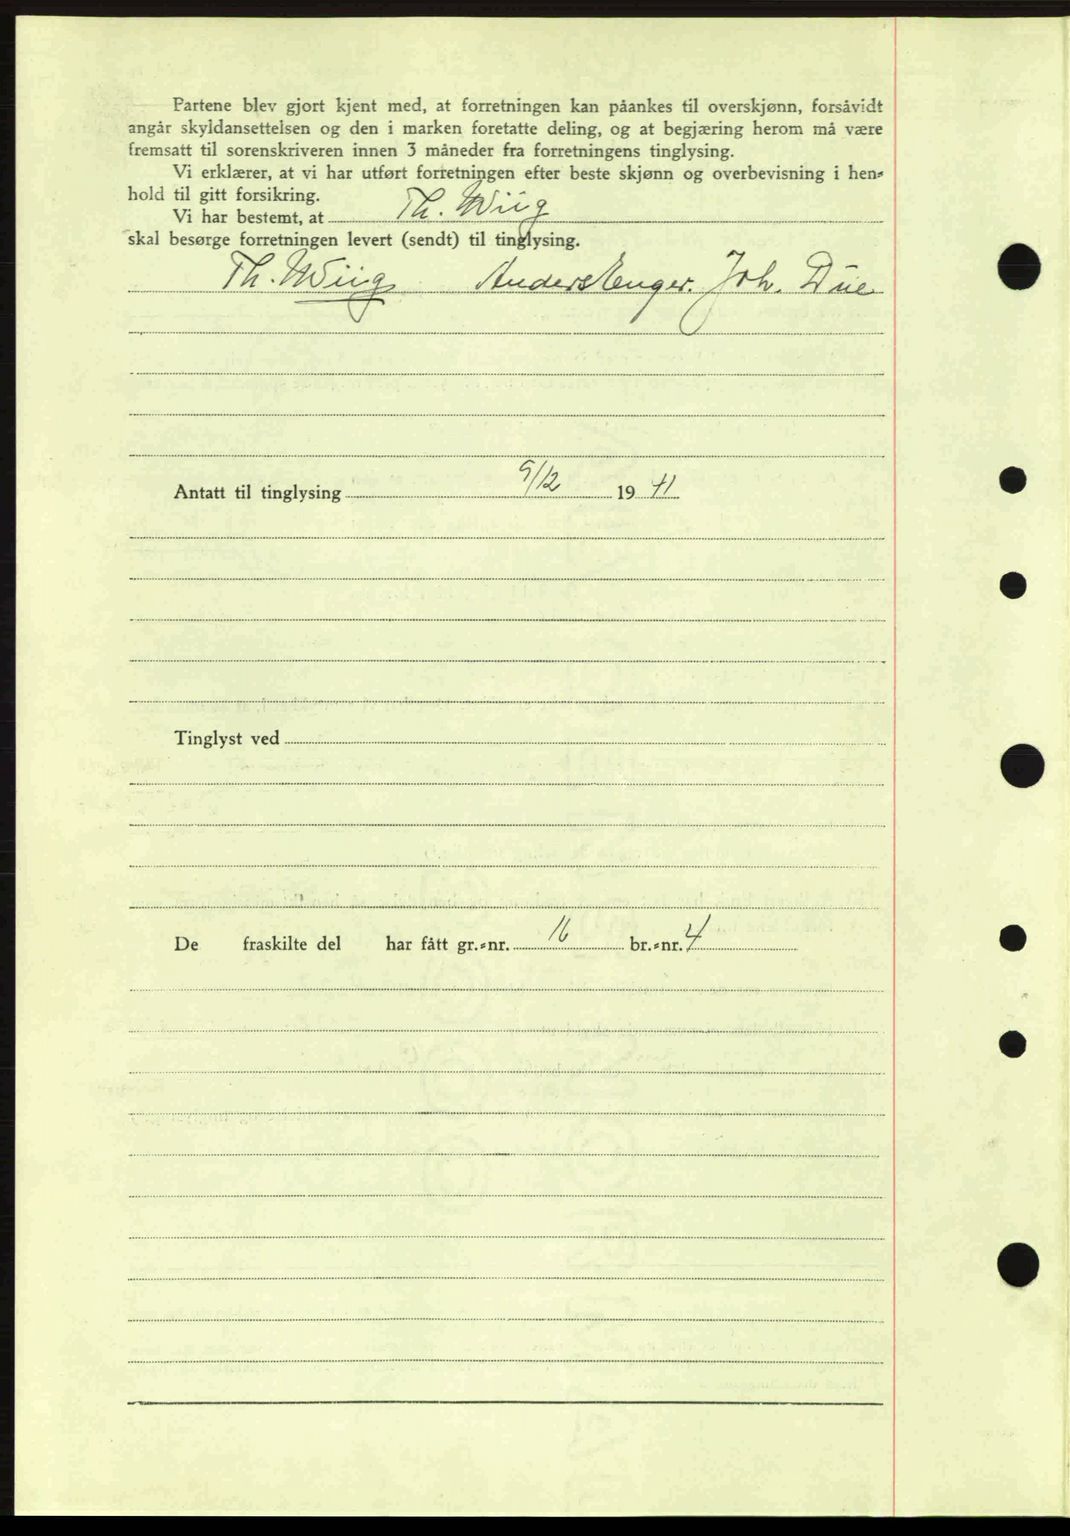 Partene blev gjort kjent med, at forretningen kan påankes til overskjønn, forsåvidt
angår skyldansettelsen og den i marken foretatte deling, og at begjæring herom må være
fremsatt til sorenskriveren innen 3 måneder fra forretningens tinglysing.
Vi erklærer, at vi har utført forretningen efter beste skjønn og overbevisning i hen-
hold til gitt forsikring.
Vi har bestemt, at Th. Wiig
skal besørge forretningen levert (sendt) til tinglysing.
Th. Wiig Anders Enger. Joh. Due
Antatt til tinglysing 9/12 19 41
Tinglyst ved
De fraskilte del har fått gr.-nr. 16 br.-nr. 4